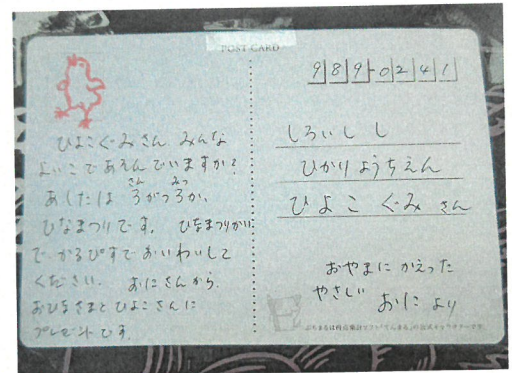 POST CARD
989-0241
ひよこぐみさん みんな
よいこであそんでいますか?
あしたは 3がつ3か、
さん みっ
ひなまつりです。 ひなまつりかい
で かるぴすで おいわいして
ください。 おにさんから、
おひなさまと ひよこさんに
プレゼントです。
しろいし し
ひかりようちえん
ひよこ ぐみ さん
おやまに かえった
やさしい おに より